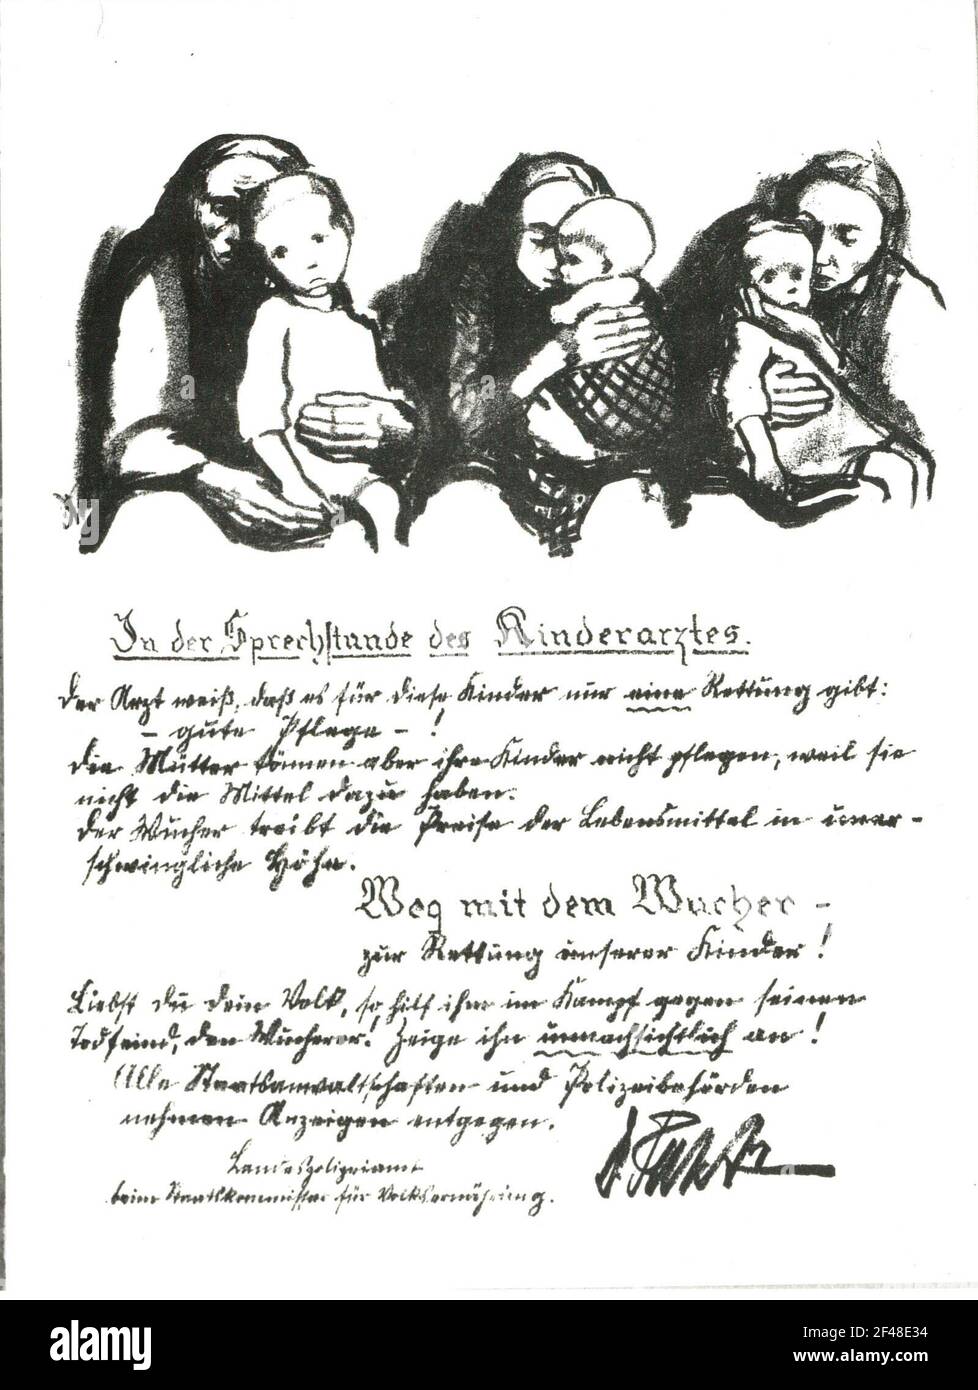 In der Sprechstunde des Kinderarztes.
Der Arzt weiß, daß es für diese Kinder nur eine Rettung gibt:
- gute Pflege - !
Die Mütter können aber ihre Kinder nicht pflegen, weil sie
nicht die Mittel dazu haben.
Der Wucher treibt die Preise der Lebensmittel in uner-
schwingliche Höhe.
Weg mit dem Wucher -
zur Rettung unserer Kinder!
Liebst du dein Volk, so hilf ihm im Kampf gegen seinen
Todfeind, den Wucherer! Zeige ihn unnachsichtlich an!
Alle Staatsanwaltschaften und Polizeibehörden
nehmen Anzeigen entgegen.
Landespolizeiamt
beim Staatskommissar für Volksernährung.
a alamy
alamy
Image ID: 2F48E34
www.alamy.com